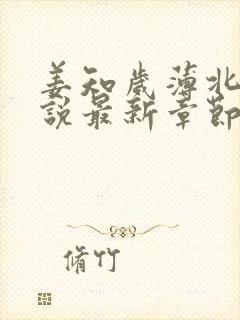 姜知歲薄北
說最新章節
脩竹